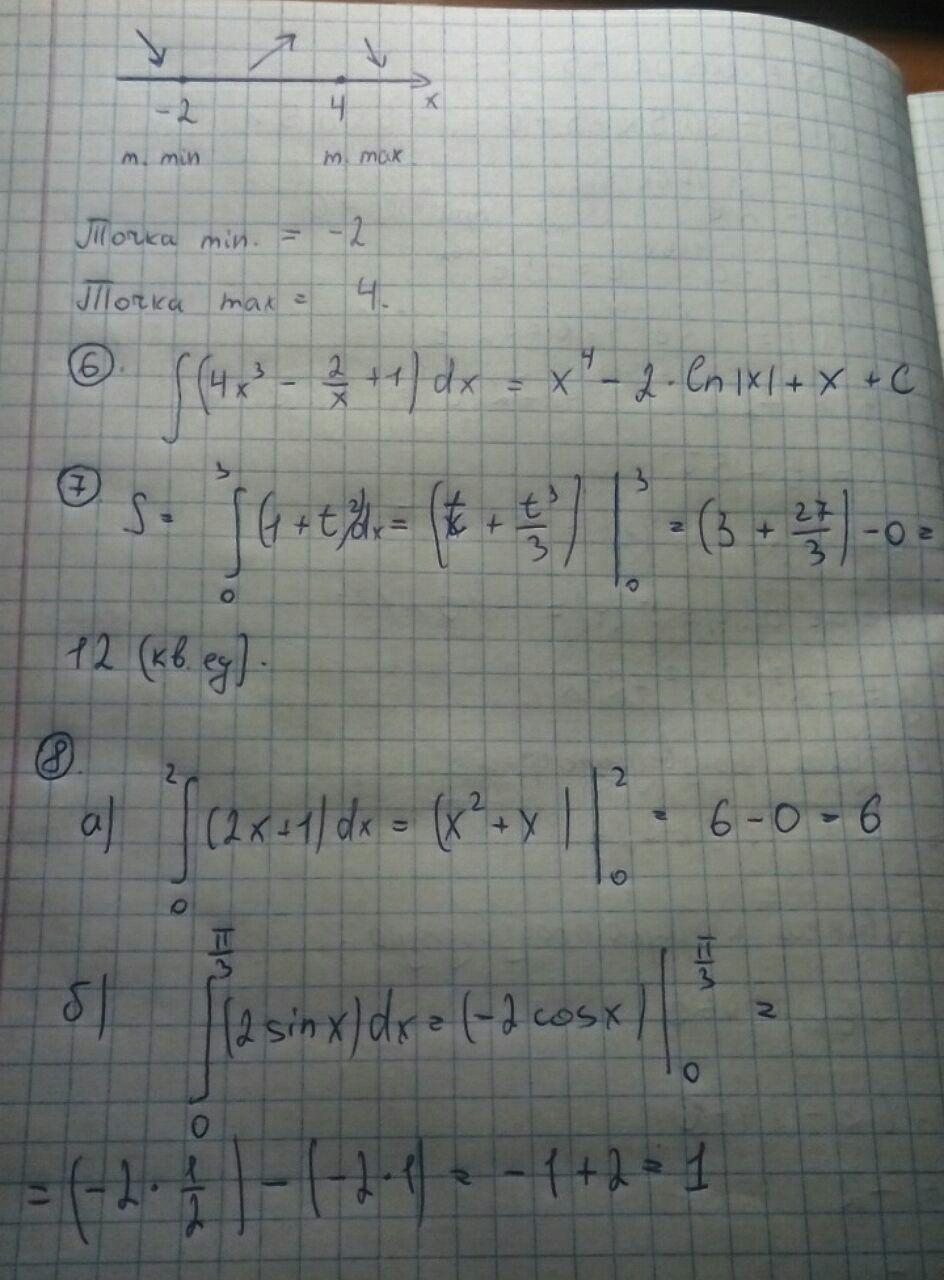 -2 4 x
т. min т. max
Точка min. = -2
Точка max = 4.
⑥. ∫(4x³ - 2/x + 1) dx = x⁴ - 2 · ln|x| + x + C
⑦ S = ∫₀³ (1 + t²)dx = (t + t³/3) |₀³ = (3 + 27/3) - 0 =
12 (кв. ед).
⑧.
а) ∫₀² (2x+1) dx = (x² + x) |₀² = 6 - 0 = 6
б) ∫₀^(π/3) (2 sin x) dx = (-2 cos x) |₀^(π/3) =
= (-2 · 1/2) - (-2 · 1) = -1 + 2 = 1